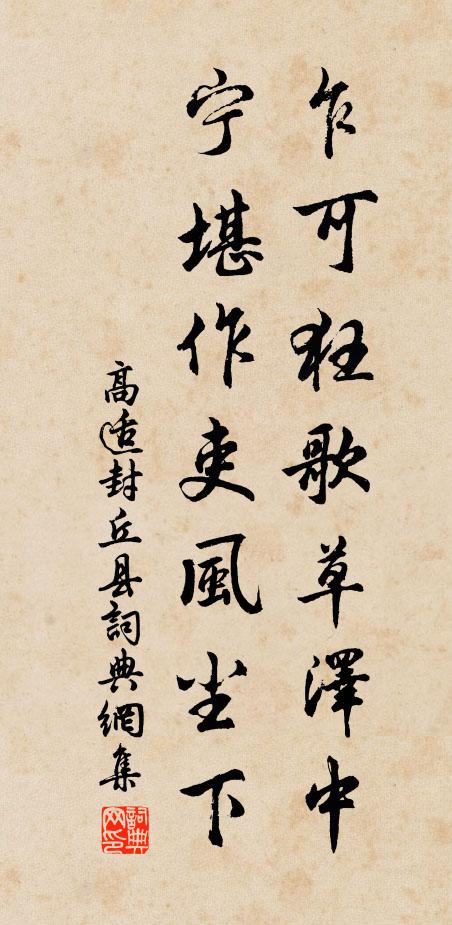 乍可狂歌草澤中
宁堪作吏風尘下
高适封丘县詞典網集
詞典网印